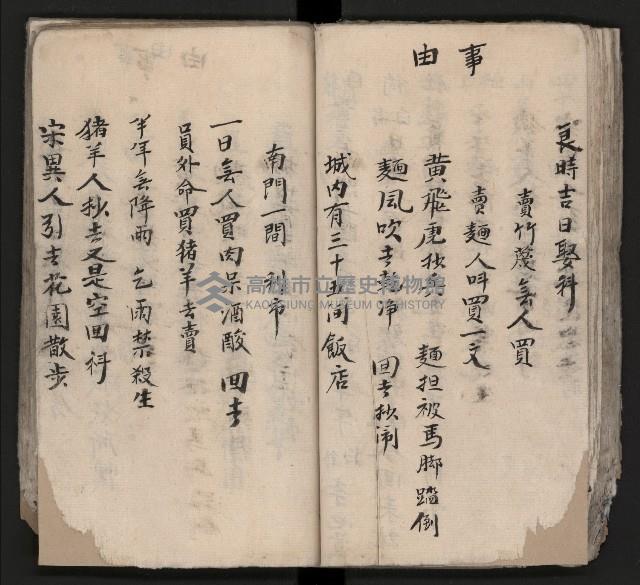 事由
良時吉日娶科
賣竹篾無人買
賣麵人叫買一文
黃飛虎 麵担被馬脚踏倒
麵風吹去淨 回去抄鬧
城内有三十五间飯店
南門一間 利市
一日無人買肉呆酒酸 回去
員外命買猪羊去賣
半年無降雨 乞雨禁殺生
猪羊人抄去又是空回科
宋異人引去花園散步
高雄市立歷史博物館
KAOHSIUNG MUSEUM OF HISTORY